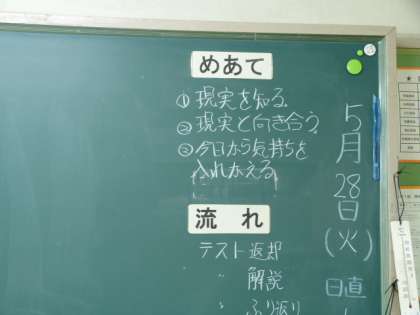 めあて
①現実を知る
②現実と向き合う
③今日から気持ちを
入れかえる
流れ
テスト返却
〃 解説
〃 ふり返り
5月28日(火)
日直